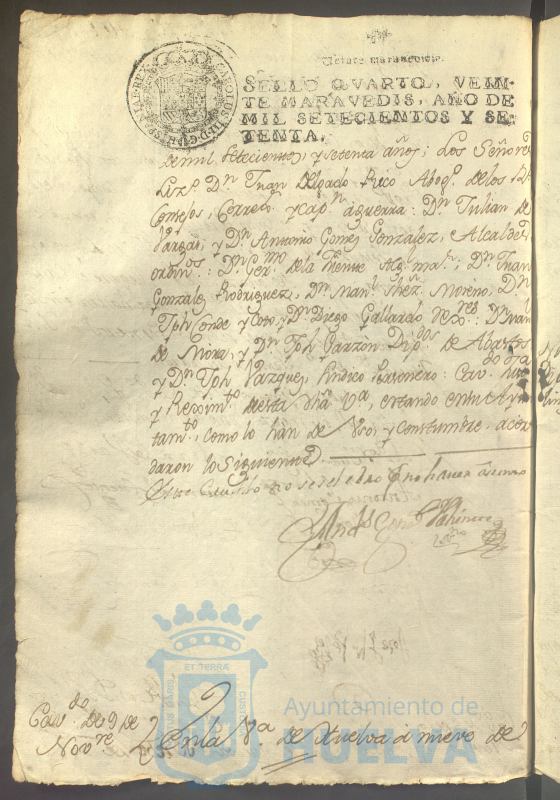 CAROLUS III D G HISPANIAR REX
Veinte maravedis.
SELLO QVARTO, VEIN-
TE MARAVEDIS, AÑO DE
MIL SETECIENTOS Y SE-
TENTA.
de mil, setecientos, y setenta años; Los Señores
Liz.do Dn Juan Delgado Rico Abogo. de los Rs
Consejos, Correxor. y Capn aguerra: Dn Julian de
Vargas, y Dn Antonio Gomez Gonzalez, Alcaldes
ordinos.: Dn Germo de la Fuente Alg. maor.; Dn Juan
Gonzalez Rodriguez, Dn Manl. Moreno, Dn
Jph Conde y Coto, y Dn Diego Gallardo Rexres: Dn
de Mora, y Dn Jph Garzon Dipdos de Abastos
y Dn Jph Vazquez Sindico Personero: Cavdo Justa
y Reximto desta dha Va, estando en su Ayun
tamto, como lo han de Uso, y Constumbre acor
daron lo Siguiente
Este Cavildo no se zelebro
ET TERRÆ
CUSTODIA
PORTUS MARIS
Ayuntamiento de
HUELVA
Cavdo. de 9 de
Novre.
En la Va de Huelva à nueve de